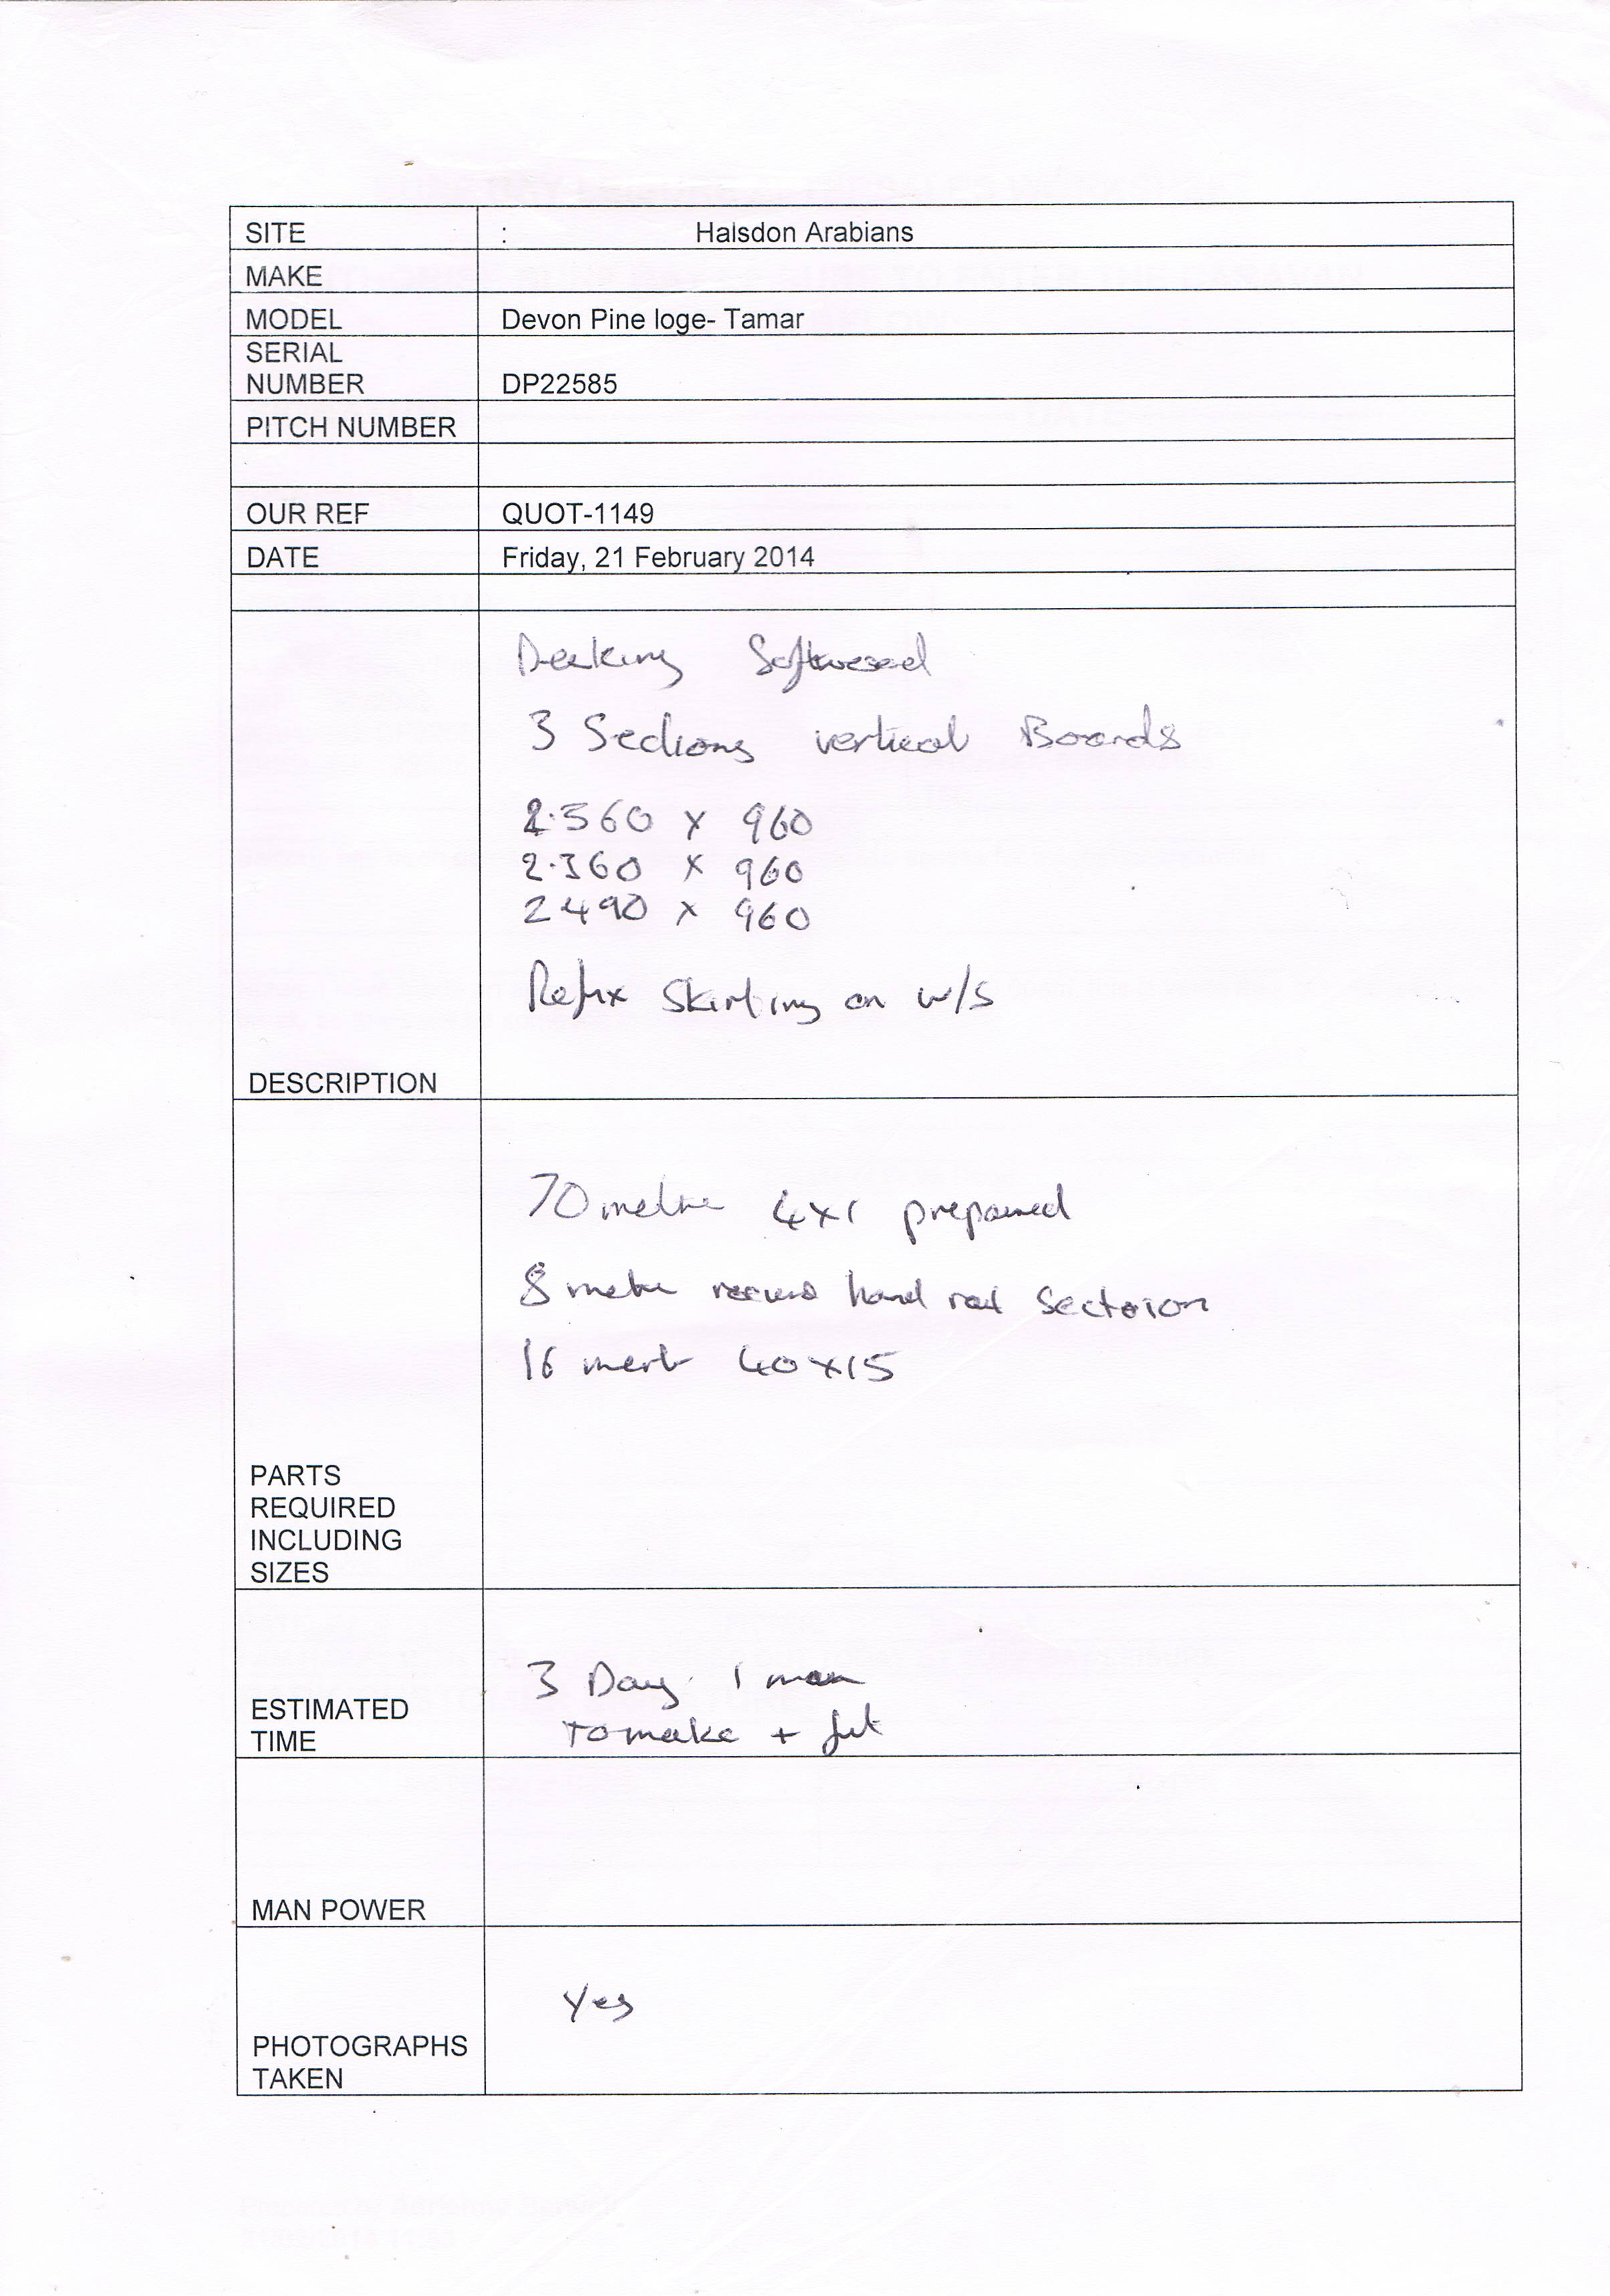 SITE : Halsdon Arabians
MAKE
MODEL Devon Pine loge- Tamar
SERIAL
NUMBER DP22585
PITCH NUMBER
OUR REF QUOT-1149
DATE Friday, 21 February 2014
Decking Softwood
3 Sections vertical Boards
2.560 x 960
2.360 x 960
2490 x 960
Refix Skirting on w/s
DESCRIPTION
70 metre 4x1 prepared
8 metre hand rail Sectoion
16 40x15
PARTS
REQUIRED
INCLUDING
SIZES
3 Day 1 man
To make + fit
ESTIMATED
TIME
MAN POWER
Yes
PHOTOGRAPHS
TAKEN